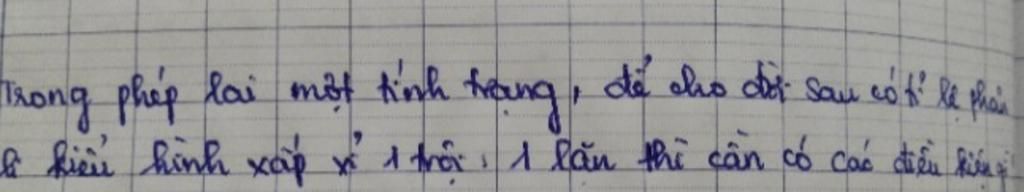 Trong phép lai một tính trạng, để cho đời sau có tỉ lệ phân
li kiểu hình xấp xỉ 1 trội : 1 lặn thì cần có các điều kiện gì